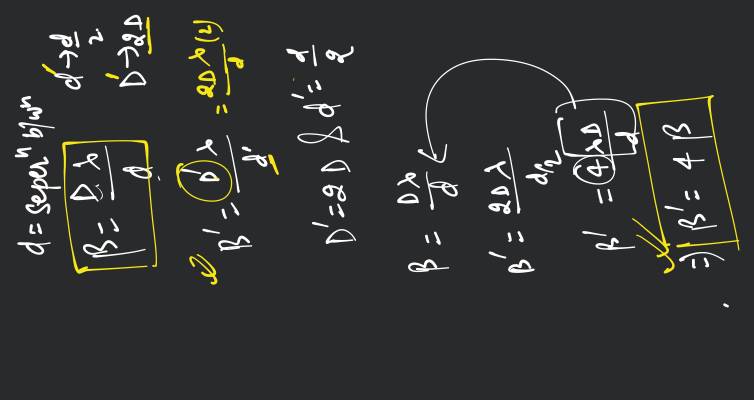 d = seperⁿ b/wⁿ
d' → d/2
D' → 2D
β = Dλ/d
β' = D'λ/d' = 2Dλ(2)/d
D' = 2D & d' = d/2
β = Dλ/d
β' = 2Dλ/d/2
β' = 4λD/d
⇒ β' = 4β